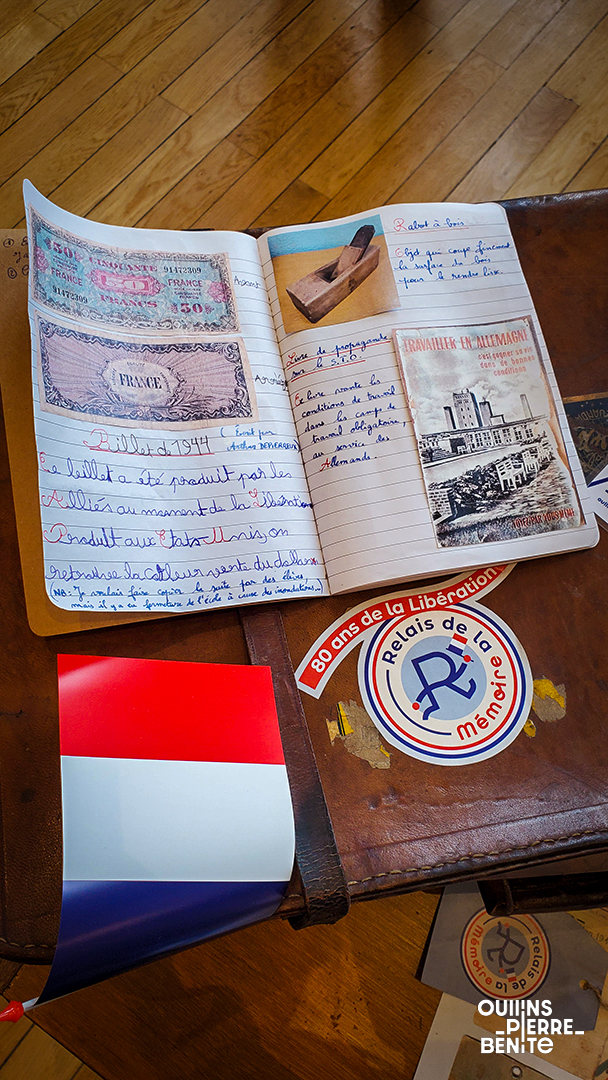 50 CINQUANTE
91472309
FRANCE
50
FRANCE
91472309
FRANCS
50
Avant
FRANCE
Arrière
Billet de 1944
(Écrit par
Arthur
Ce billet a été produit par les
Alliés au moment de la Libération
Produit aux États-Unis, on
retrouve la couleur verte du dollar
(NB: Je voulais faire copier la suite par des élèves
mais il y a eu fermeture de l'école à cause des inondations...)
Rabot à bois
Objet qui coupe finement
la surface du bois
pour le rendre lisse.
Livre de propagande
sur le S.T.O.
Ce livre vante les
conditions de travail
dans les camps de
travail obligatoire,
au service des
Allemands.
TRAVAILLER EN ALLEMAGNE
c'est gagner sa vie
dans de bonnes
conditions
80 ans de la Libération
Relais de la
Mémoire
Relais de la
Mémoire
OULLINS
PIERRE
BENITE